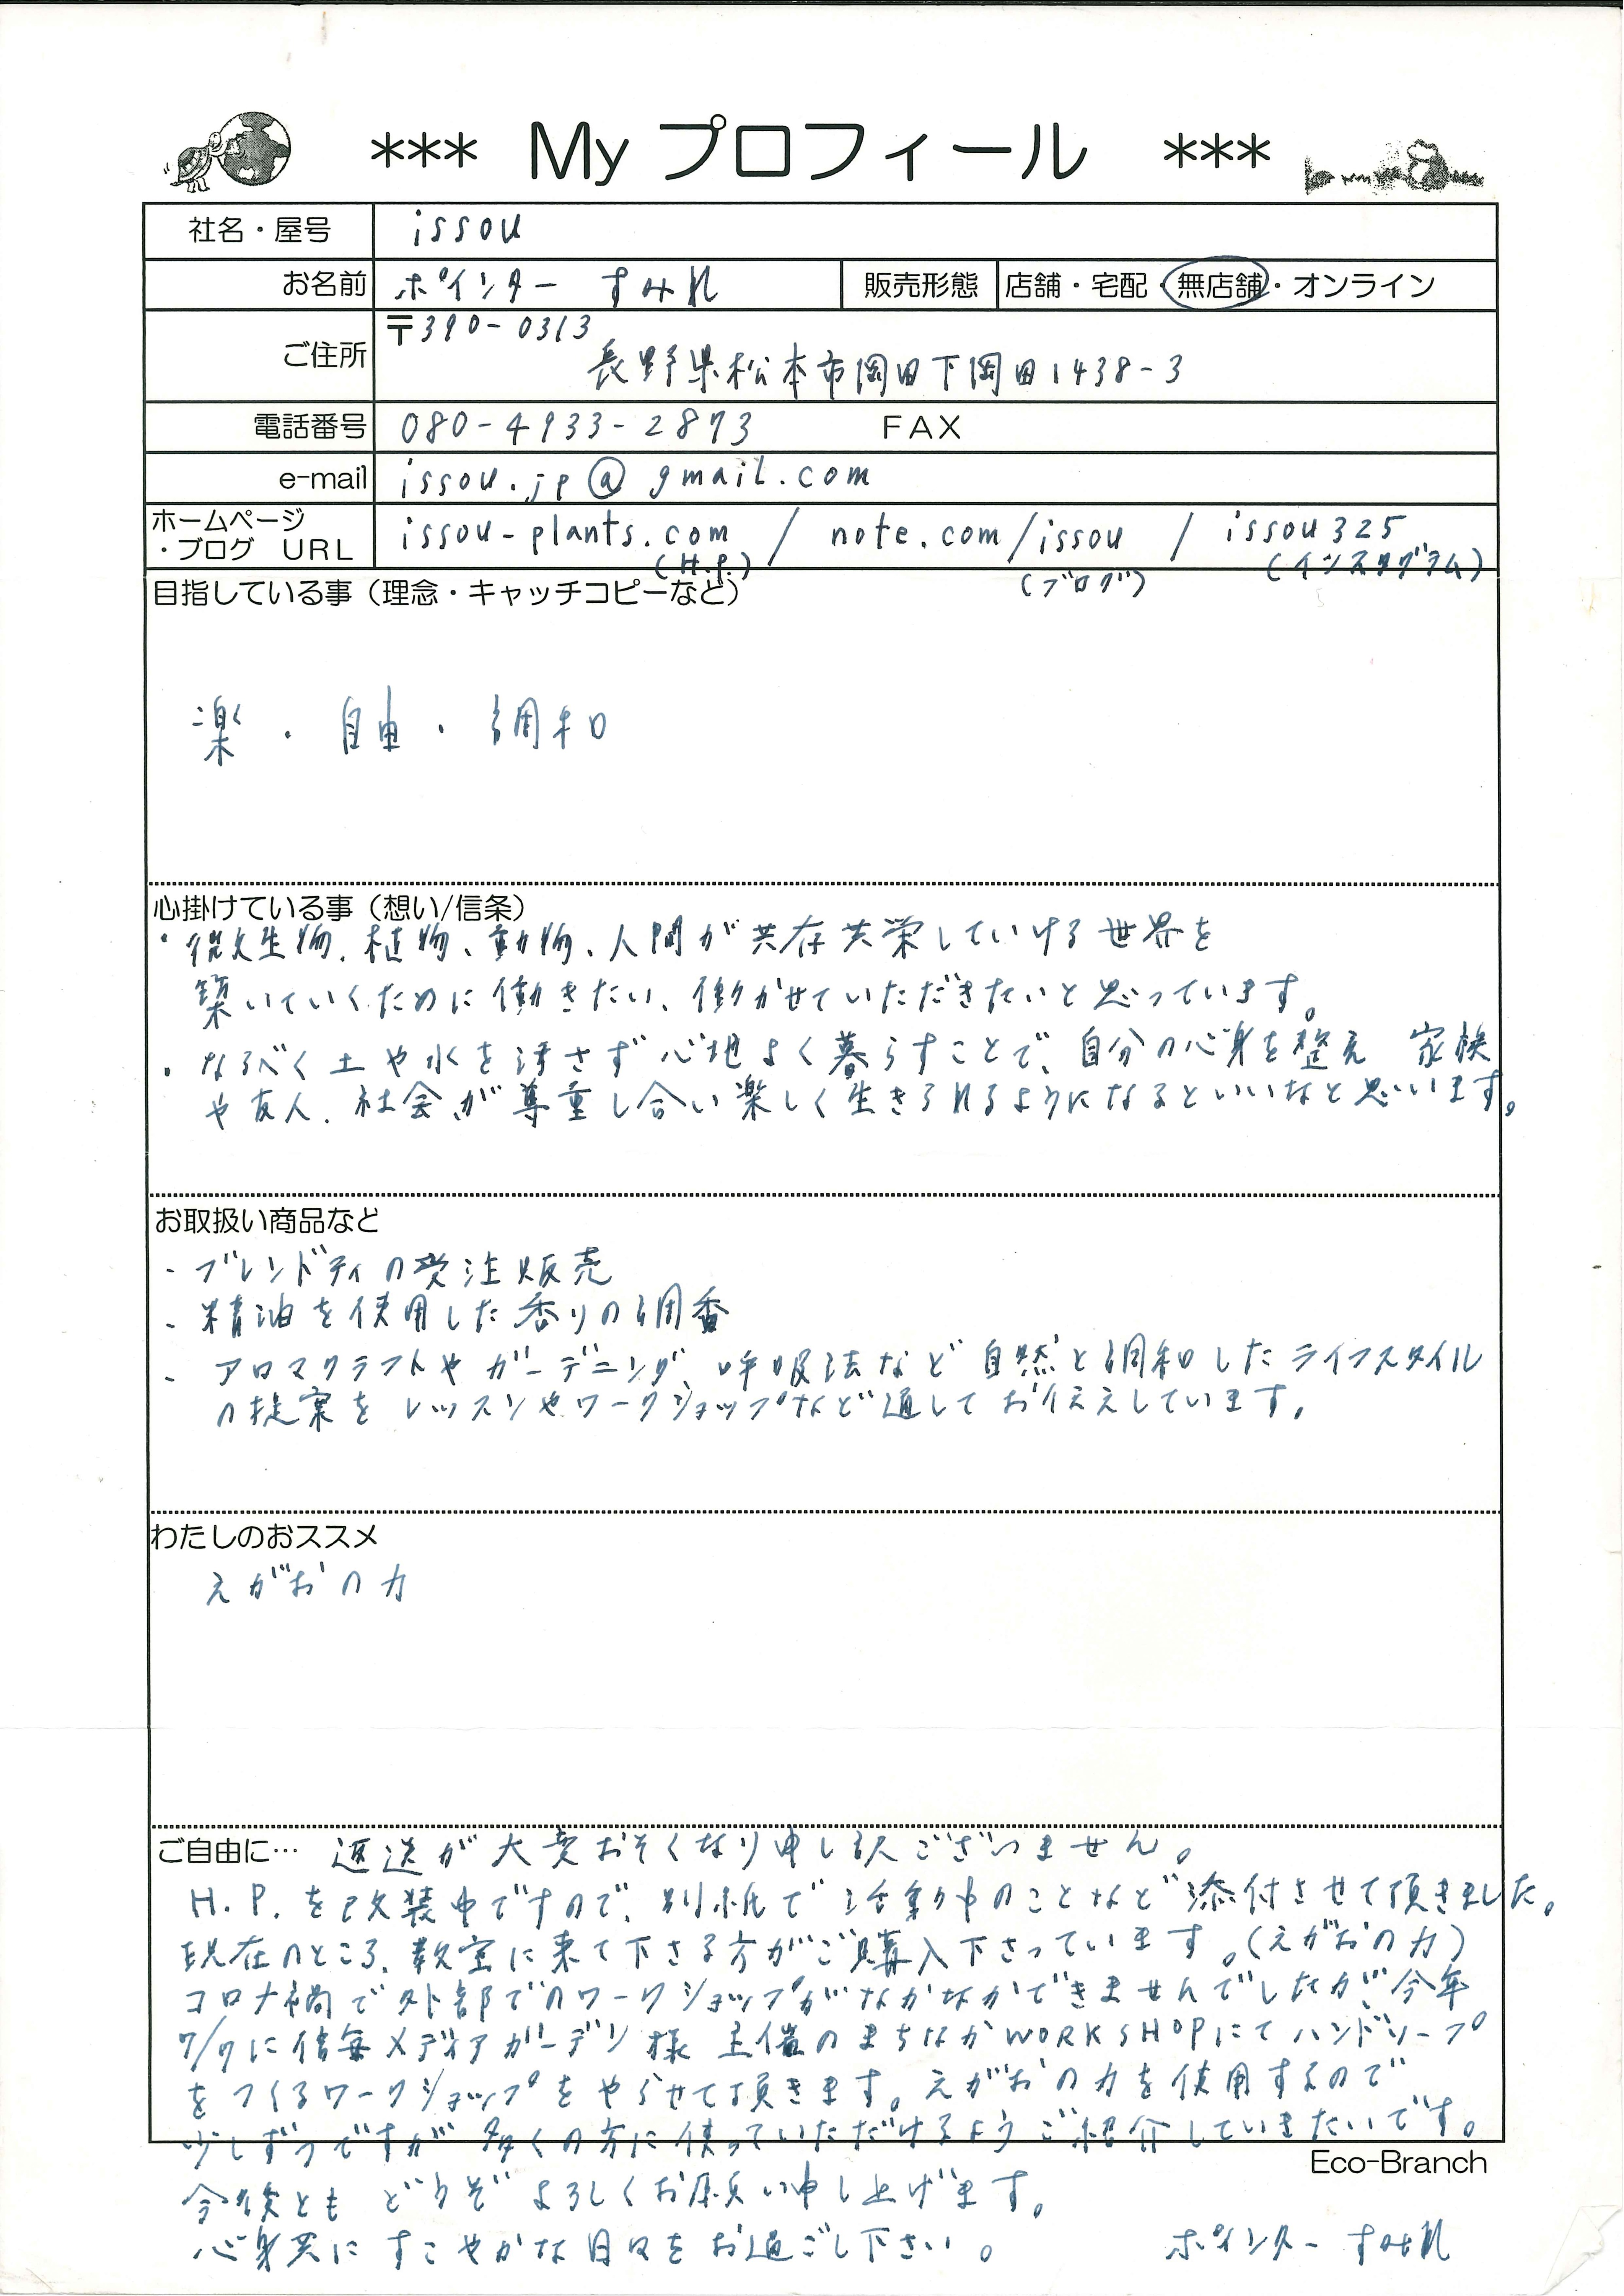 *** My プロフィール ***
社名・屋号 issou
お名前 ポインター すみれ 販売形態 店舗・宅配・無店舗・オンライン
ご住所 〒390-0313
長野県松本市岡田下岡田1438-3
電話番号 080-4933-2873 FAX
e-mail issou.jp@gmail.com
ホームページ
・ブログ URL issou-plants.com / note.com/issou / issou325
(H.P.) (ブログ) (インスタグラム)
目指している事（理念・キャッチコピーなど）
楽・自由・調和
心掛けている事（想い/信条）
・微生物、植物、動物、人間が共存共栄していける世界を
築いていくために働きたい、働かせていただきたいと思っています。
・なるべく土や水を汚さず心地よく暮らすことで、自分の心身を整え 家族
や友人、社会が尊重し合い楽しく生きられるようになるといいなと思います。
お取扱い商品など
- ブレンドティの受注販売
- 精油を使用した香りの調香
- アロマクラフトやガーデニング、呼吸法など自然と調和したライフスタイル
の提案をレッスンやワークショップなど通してお伝えしています。
わたしのおススメ
えがおの力
ご自由に… 返送が大変おそくなり申し訳ございません。
H.P.を改装中ですので、別紙で活動中のことなど添付させて頂きました。
現在のところ、教室に来て下さる方がご購入下さっています。(えがおの力)
コロナ禍で外部でのワークショップがなかなかできませんでしたが、今年
7/7に信毎メディアガーデン様 主催のまちなかWORKSHOPにてハンドソープ
をつくるワークショップをやらせて頂きます。えがおの力を使用するので
少しずつですが多くの方に使っていただけるようご紹介していきたいです。
Eco-Branch
今後とも どうぞ よろしくお願い申し上げます。
心身共に すこやかな日々をお過ごし下さい。 ポインター すみれ